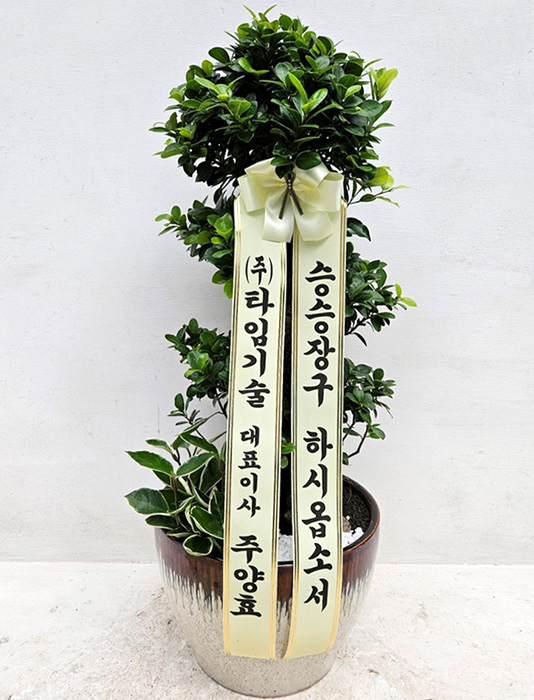 승승장구 하시옵소서
(주)타임기술 대표이사 주양효